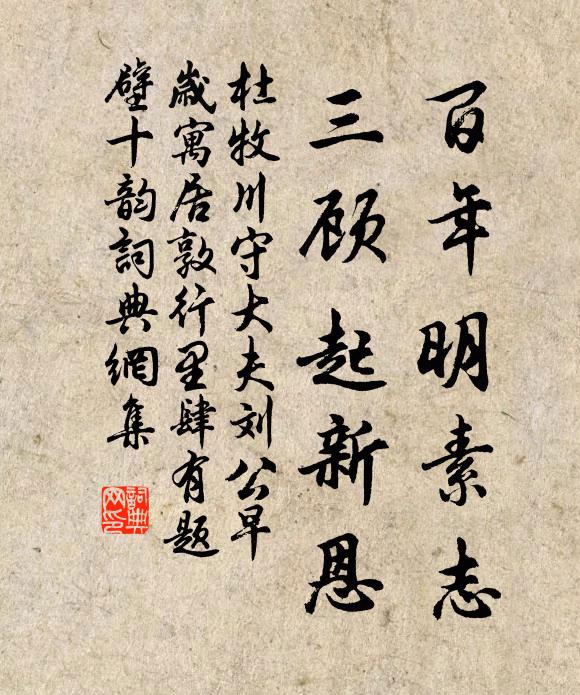 百年明素志
三顾起新恩
杜牧川守大夫刘公早
岁寓居敦行里肆有题
壁十韵詞典網集
詞典网印